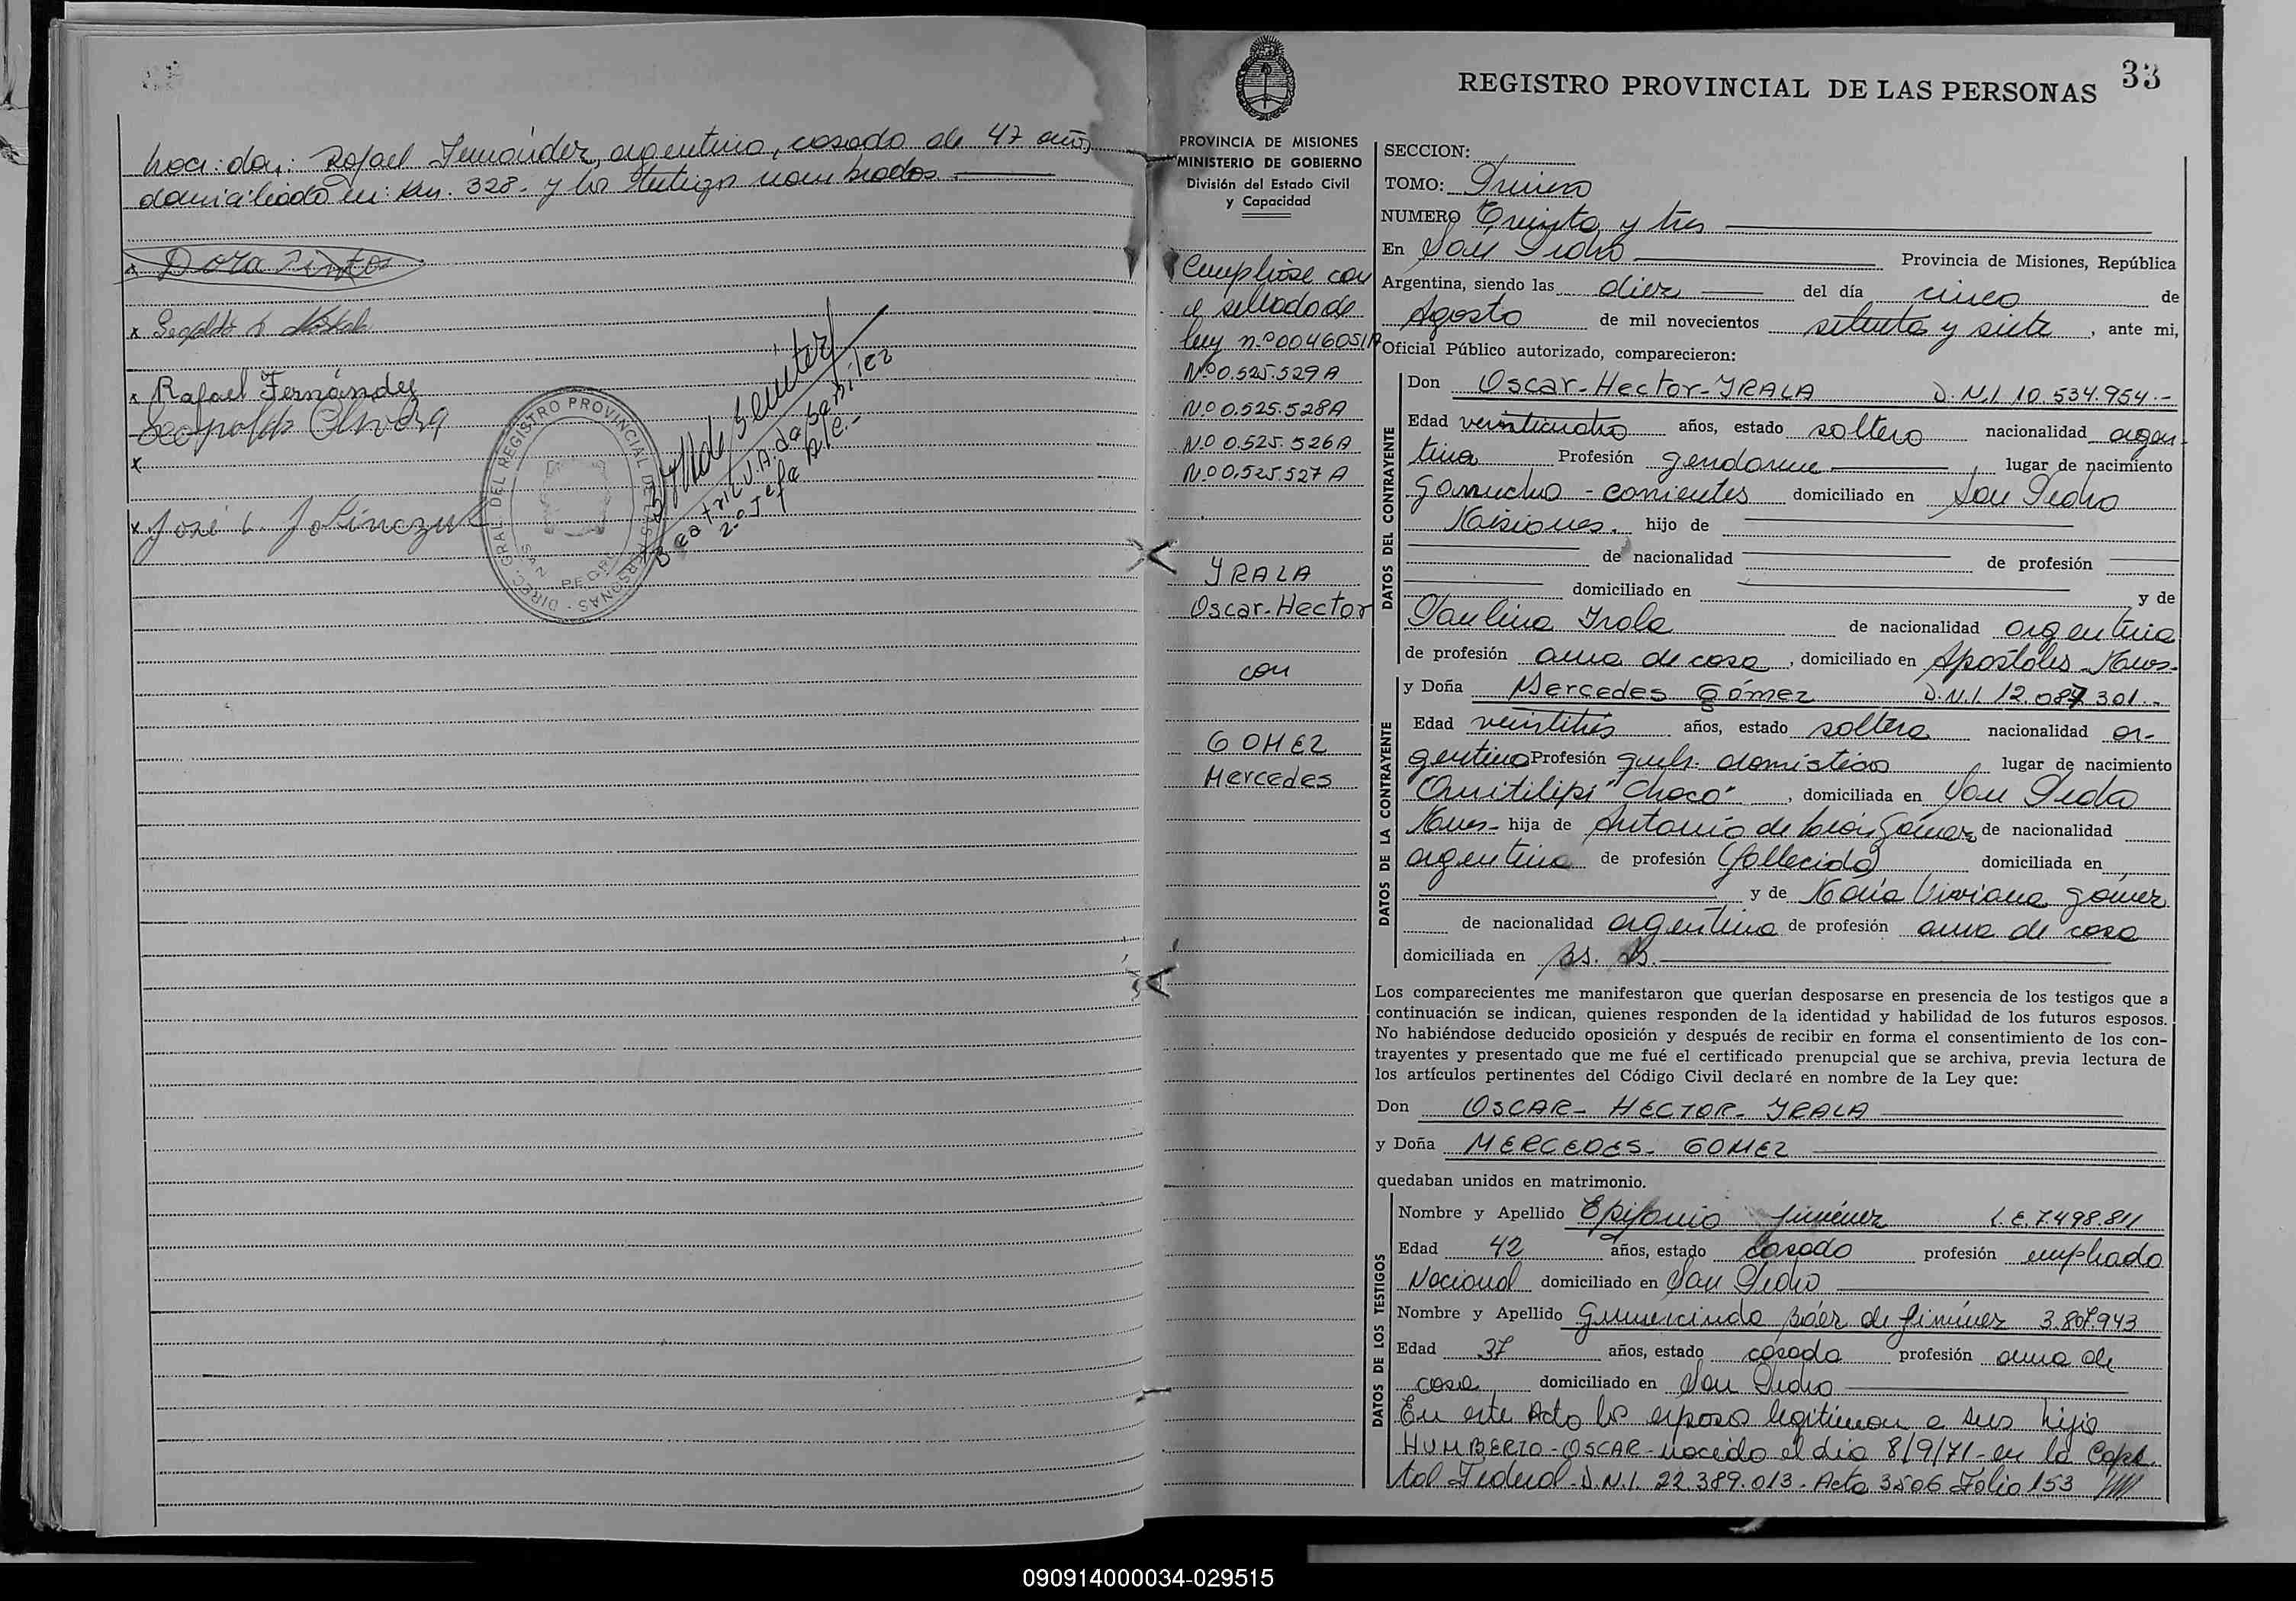 Rafael Fernández, argentino, casado de 47 años
domiciliado en: km. 328- y los testigos nombrados
x Dora Pinto
x
x Rafael Fernández
Leopoldo Olivera
x
x José L.
DIREC. GRAL. DEL REGISTRO PROVINCIAL DE LAS PERSONAS
SAN PEDRO
Beatriz V. A. de
2º Jefe
REGISTRO PROVINCIAL DE LAS PERSONAS 33
PROVINCIA DE MISIONES
MINISTERIO DE GOBIERNO
División del Estado Civil
y Capacidad
Cumpliose con
el sellado de
ley n.º 0046051A
Nº 0.525.529 A
Nº 0.525.528 A
Nº 0.525.526 A
Nº 0.525.527 A
YRALA
Oscar-Hector
con
GOMEZ
Mercedes
SECCION:
TOMO: Primero
NUMERO Treinta y tres
En San Pedro Provincia de Misiones, República
Argentina, siendo las diez del día cinco de
Agosto de mil novecientos setenta y siete, ante mi,
Oficial Público autorizado, comparecieron:
DATOS DEL CONTRAYENTE
Don Oscar-Hector-YRALA D.N.I 10.534.954.-
Edad veinticuatro años, estado soltero nacionalidad argen-
tina Profesión gendarme, lugar de nacimiento
Garruchos - corrientes domiciliado en San Pedro
Misiones. hijo de
de nacionalidad de profesión
domiciliado en y de
Paulina Yrala de nacionalidad argentina
de profesión ama de casa, domiciliado en Apostoles - Mnes-
DATOS DE LA CONTRAYENTE
y Doña Mercedes Gómez D.N.I. 12.087.301.-
Edad veintitrés años, estado soltera nacionalidad ar-
gentina Profesión queh. domésticos lugar de nacimiento
"Quitilipi" Chaco", domiciliada en San Pedro
Mnes- hija de Antonio de León Gómez de nacionalidad
argentina de profesión (fallecido) domiciliada en
y de María Viviana Gómez
de nacionalidad argentina de profesión ama de casa
domiciliada en Bs. As.
Los comparecientes me manifestaron que querían desposarse en presencia de los testigos que a
continuación se indican, quienes responden de la identidad y habilidad de los futuros esposos.
No habiéndose deducido oposición y después de recibir en forma el consentimiento de los con-
trayentes y presentado que me fué el certificado prenupcial que se archiva, previa lectura de
los artículos pertinentes del Código Civil declaré en nombre de la Ley que:
Don OSCAR- HECTOR- YRALA
y Doña MERCEDES- GOMEZ
quedaban unidos en matrimonio.
DATOS DE LOS TESTIGOS
Nombre y Apellido Epifanio Jiménez L.E. 7.498.811
Edad 42 años, estado casado profesión empleado
Nacional domiciliado en San Pedro
Nombre y Apellido Gumercinda Báez de Jiménez 3.807.943
Edad 37 años, estado casada profesión ama de
casa domiciliado en San Pedro
En este Acto los esposos legitiman a sus hijos
HUMBERTO-OSCAR-nacido el dia 8/9/71-en la Capi-
tal Federal-D.N.I. 22.389.013. Acta 3506 Folio 153
090914000034-029515